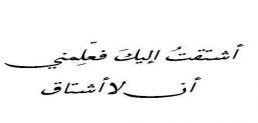 أشتقتُ إليكَ فعلّمني
أن لا أشتاق